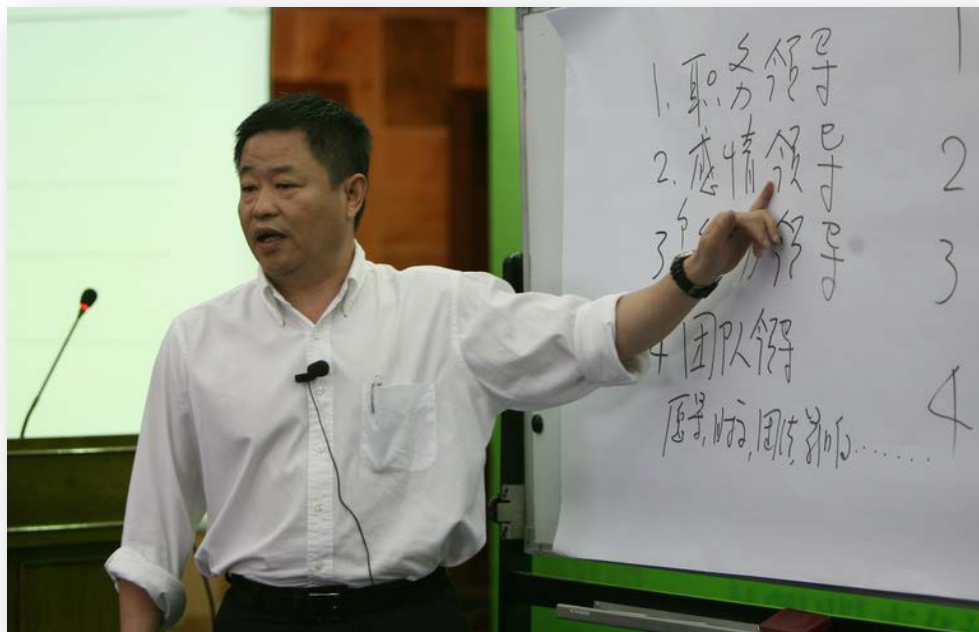 1. 职务领导
2. 感情领导
3. 领导
4 团队领导
愿景, 团结,
1
2
3
4